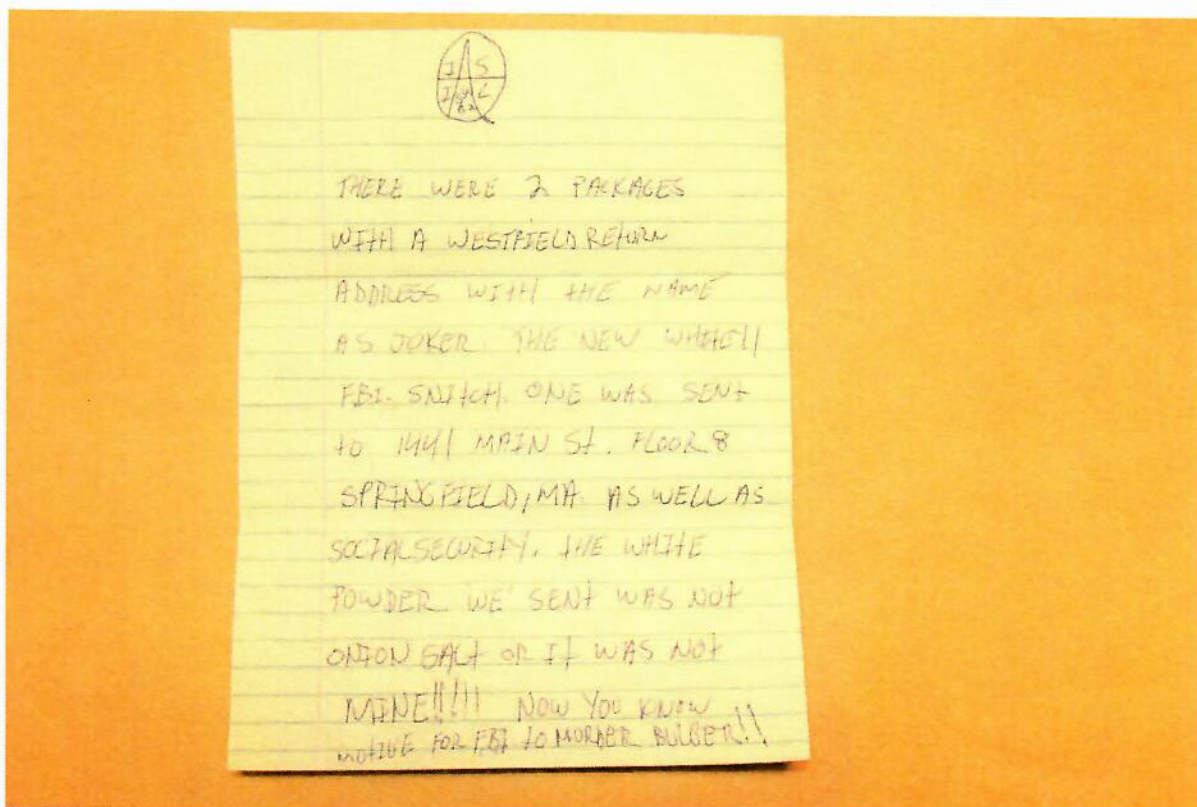 I S
I L
THERE WERE 2 PACKAGES
WITH A WESTFIELD RETURN
ADDRESS WITH THE NAME
AS JOKER THE NEW
FBI. SNITCH. ONE WAS SENT
TO 1441 MAIN ST. FLOOR 8
SPRINGFIELD, MA. AS WELL AS
SOCIAL SECURITY. THE WHITE
POWDER WE SENT WAS NOT
ONION SALT OR IT WAS NOT
MINE!!!!! NOW YOU KNOW
MOTIVE FOR FBI TO MURDER BULGER!!